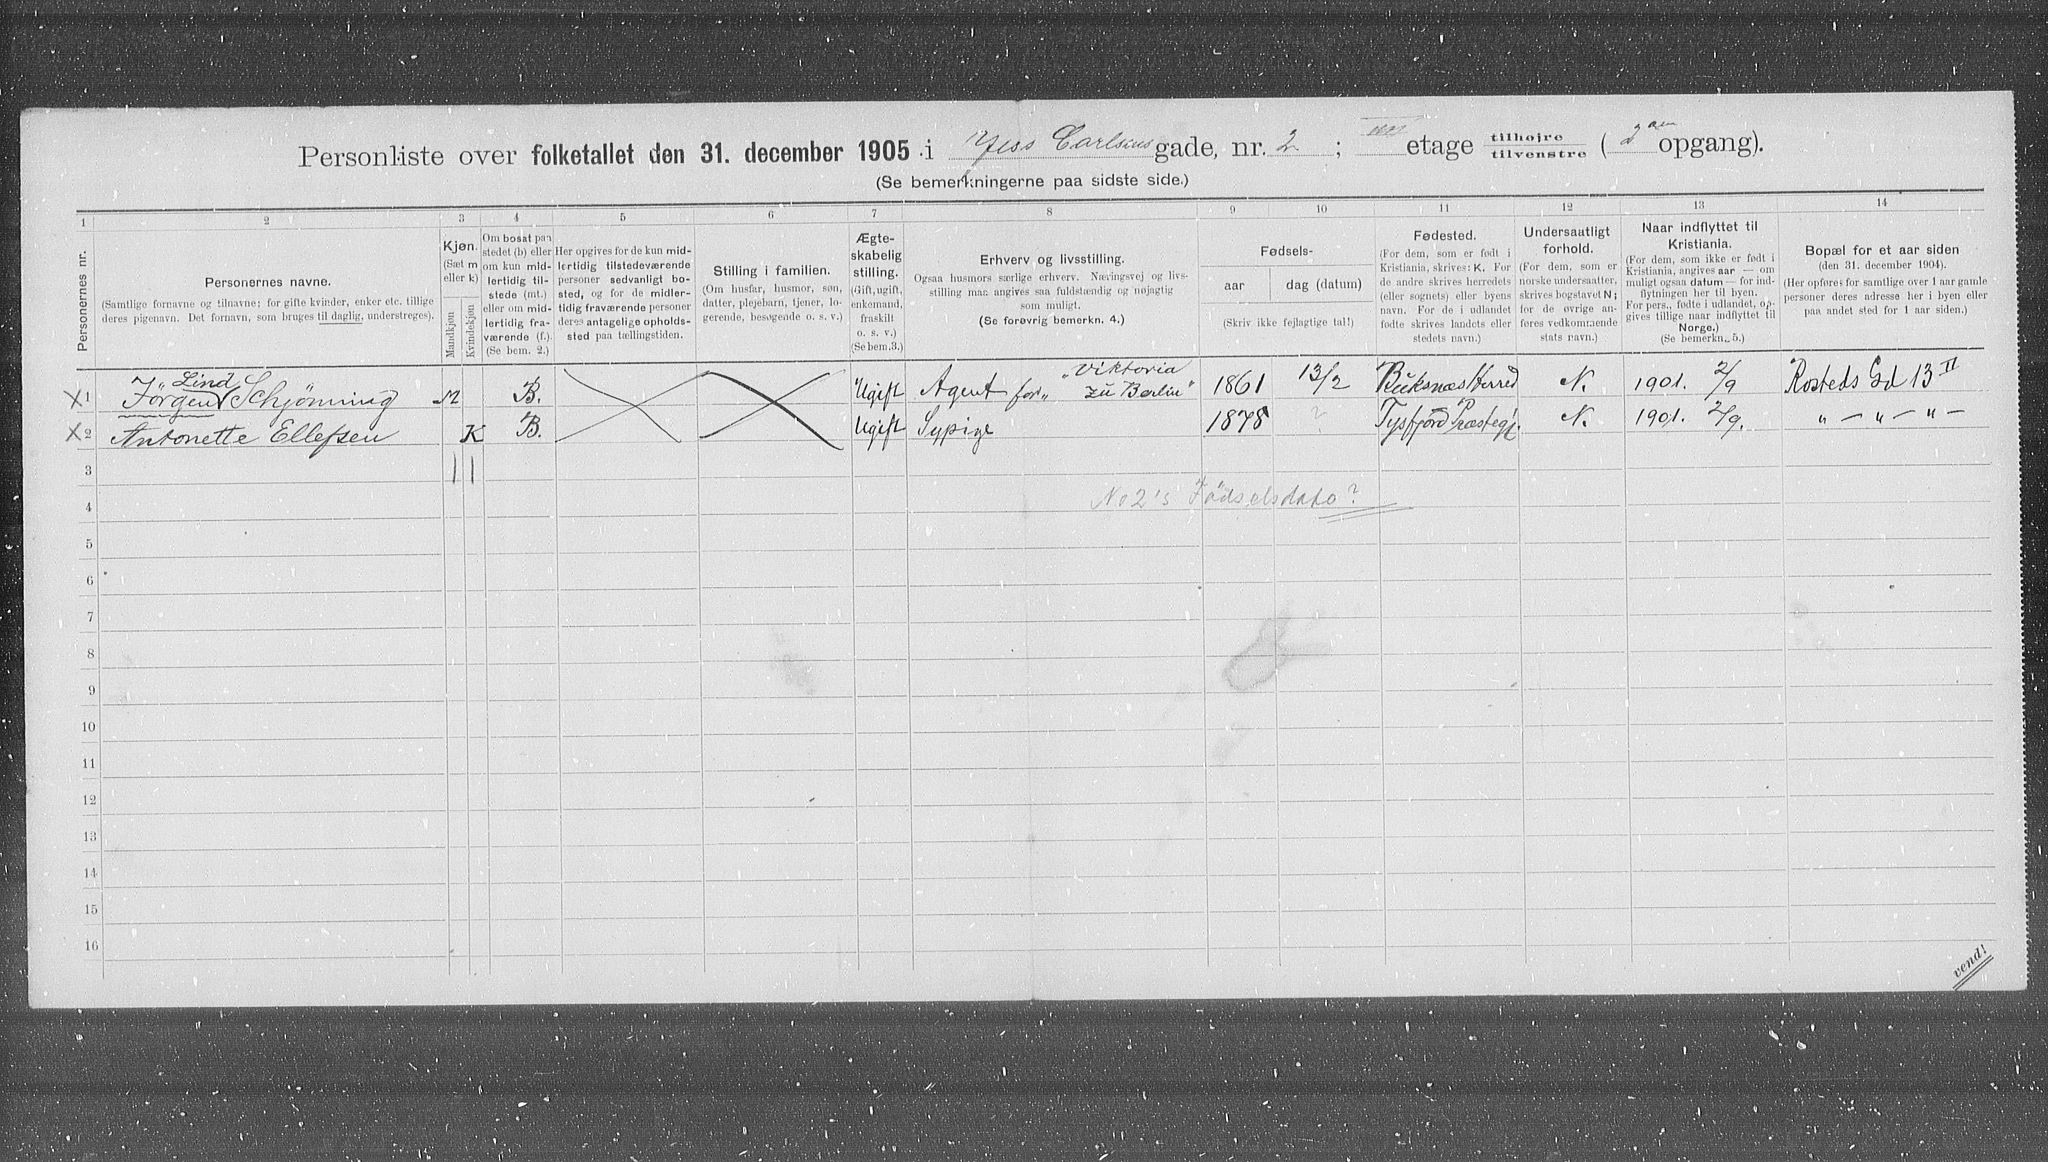 Personliste over folketallet den 31. december 1905 i Jess Carlsens gade, nr. 2 ; etage tilhøjre tilvenstre ( 2den opgang).
(Se bemerkningerne paa sidste side.)
1 2 3 4 5 6 7 8 9 10 11 12 13 14
Personernes nr.
Personernes navne.
(Samtlige fornavne og tilnavne; for gifte kvinder, enker etc. tillige
deres pigenavn. Det fornavn, som bruges til daglig, understreges).
Kjøn.
(Sæt m
eller k)
Mandkjøn
Kvindekjøn
Om bosat paa
stedet (b) eller
om kun mid-
lertidig til-
stede (mt.)
eller om mid-
lertidig fra-
værende (f.).
(Se bem. 2.)
Her opgives for de kun mid-
lertidig tilstedeværende
personer sedvanligt bo-
sted, og for de midler-
tidig fraværende personer
deres antagelige opholds-
sted paa tællingstiden.
Stilling i familien.
(Om husfar, husmor, søn,
datter, plejebarn, tjener, lo-
gerende, besøgende o. s. v.)
Ægte-
skabelig
stilling.
(Gift, ugift,
enkemand,
fraskilt
o. s. v.)
(Se bem.3.)
Erhverv og livsstilling.
Ogsaa husmors særlige erhverv. Næringsvej og livs-
stilling maa angives saa fuldstændig og nøjagtig
som muligt.
(Se forøvrig bemerkn. 4.)
Fødsels-
aar
dag (datum)
(Skriv ikke fejlagtige tal!)
Fødested.
(For dem, som er født i
Kristiania, skrives: K. For
de andre skrives herredets
(eller sognets) eller byens
navn. For de i udlandet
fødte skrives landets eller
stedets navn.)
Undersaatligt
forhold.
(For dem, som er
norske undersaatter,
skrives bogstavet N;
for de øvrige an-
føres vedkommende
stats navn.)
Naar indflyttet til
Kristiania.
(For dem, som ikke er født i
Kristiania, angives aar — om
muligt ogsaa datum — for ind-
flytningen her til byen.
For pers., fødte i udlandet, op-
gives tillige naar indflyttet til
Norge.)
(Se bemerkn. 5.)
Bopæl for et aar siden
(den 31. december 1904).
(Her opføres for samtlige over 1 aar gamle
personer deres adresse her i byen eller
paa andet sted for 1 aar siden.)
X 1 Jörgen Lind Schjönning M B. Ugift Agent for „Viktoria zu Berlin" 1861 13/2 Buksnæs Herred N. 1901. 2/9 Rosteds Gd 13 II
X 2 Antonette Ellefsen K B. Ugift Sypige 1878 ? Tysfjord Præstegj. N. 1901. 2/9. „ — „ — „ —
3
4 No 2's Fødselsdato?
5
6
7
8
9
10
11
12
13
14
15
16
vend!